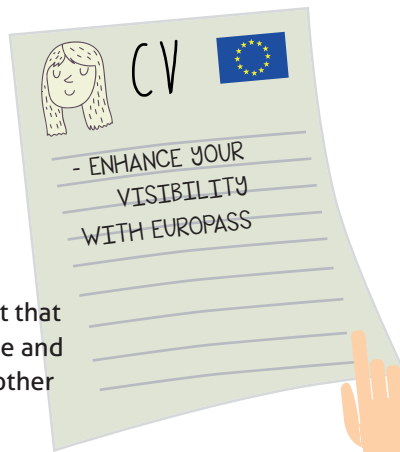 CV
- ENHANCE YOUR
VISIBILITY
WITH EUROPASS
t that
e and
other